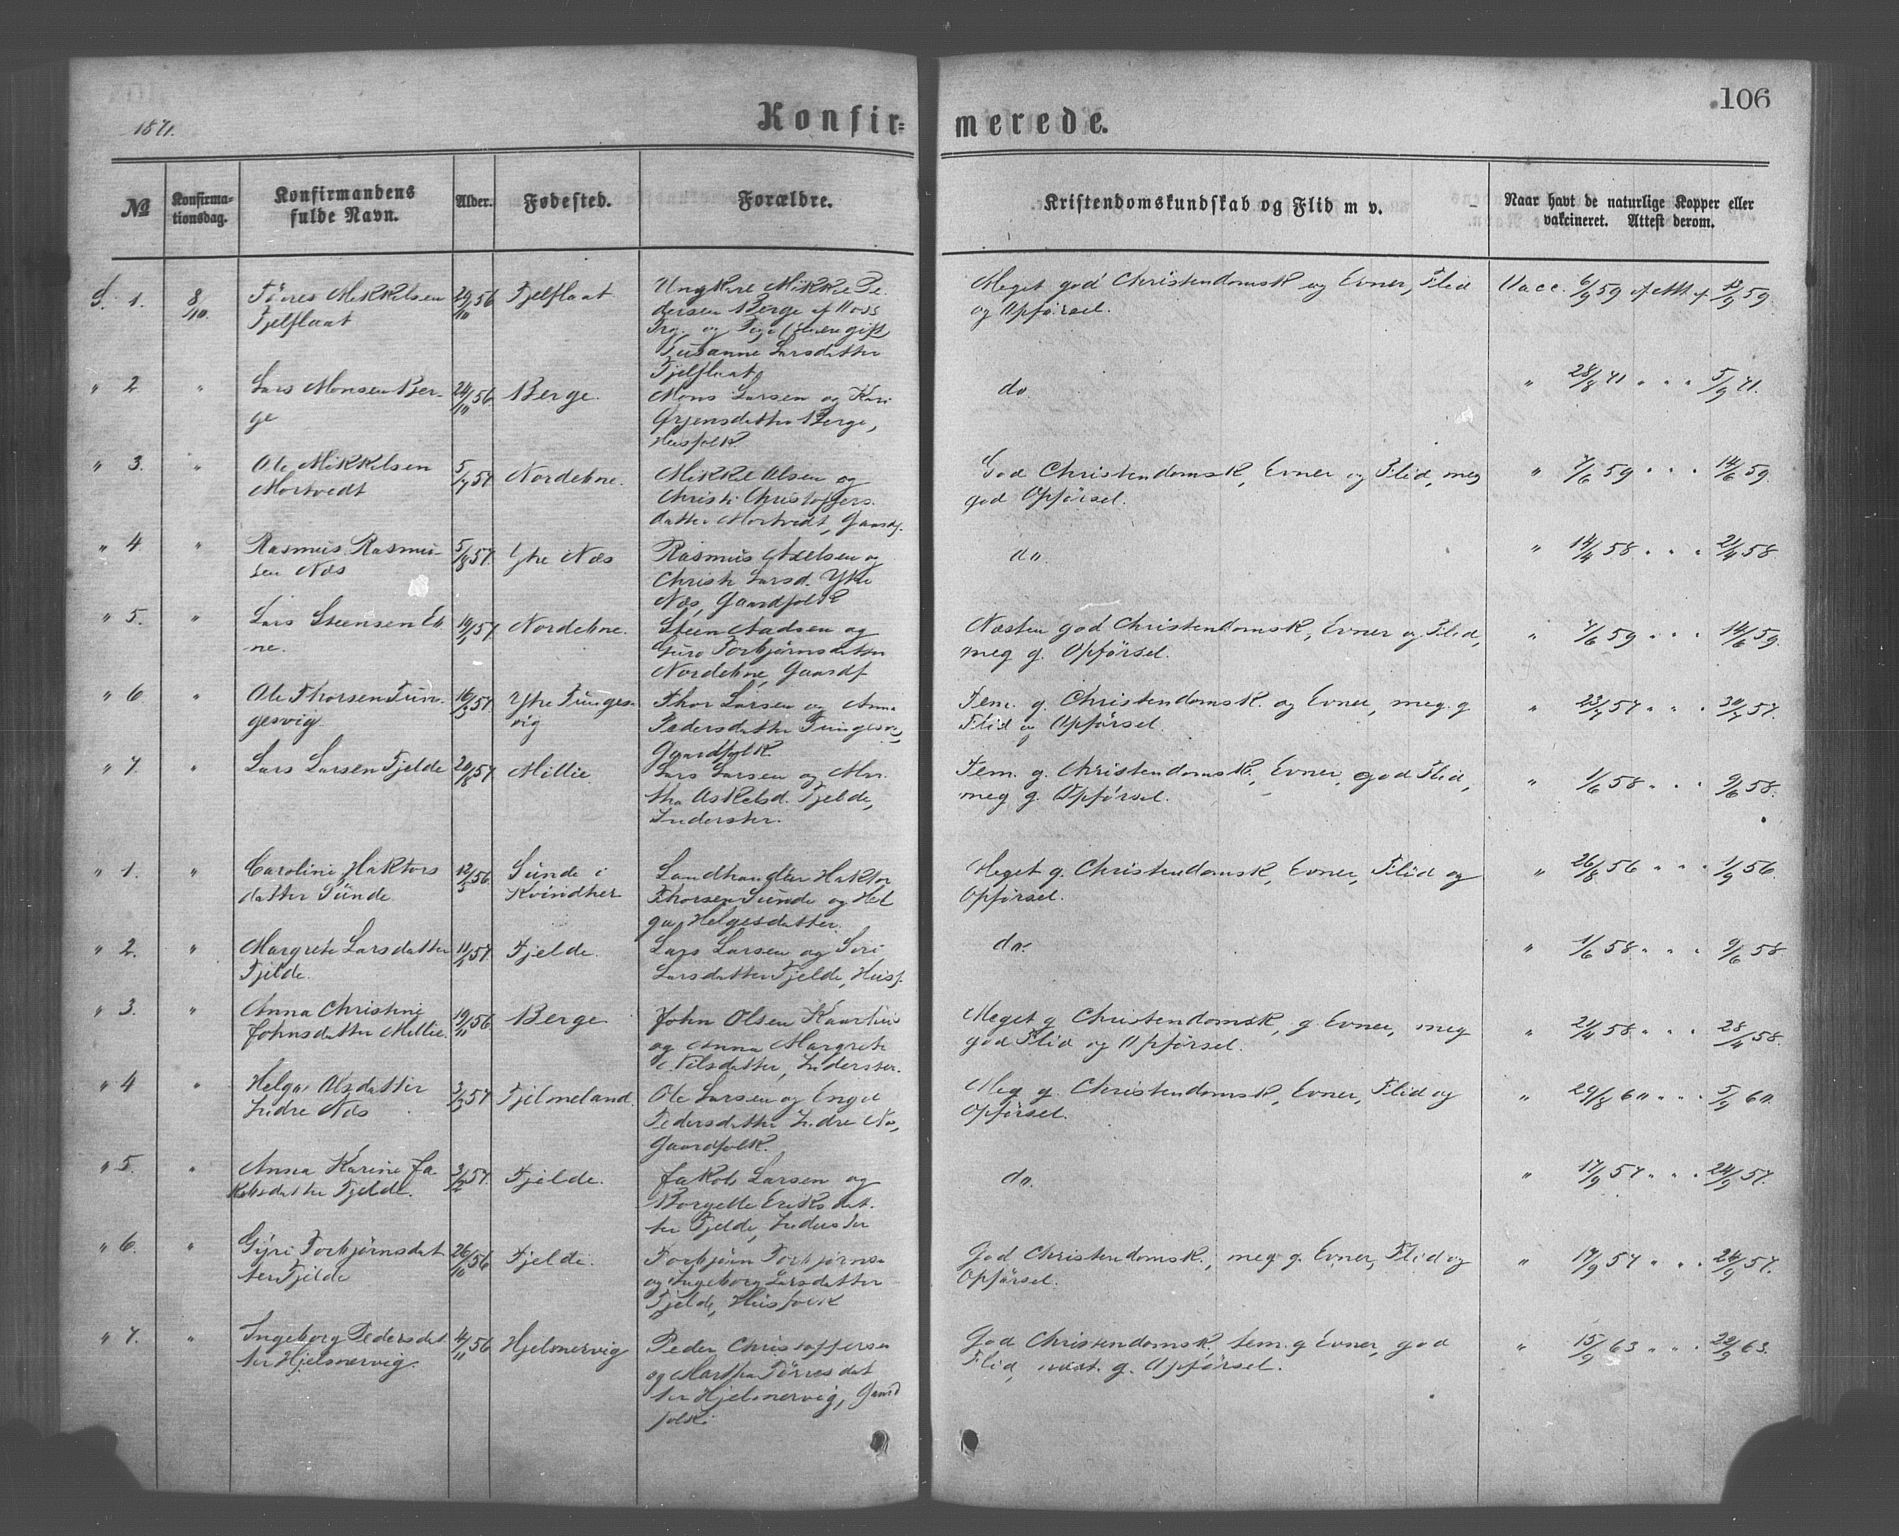 1871.
Konfir=
merede.
106
No
Konfirma-
tionsdag.
Konfirmandens
fulde Navn.
Alder.
Fødested.
Forældre.
Kristendomskundskab og Flid m v.
Naar havt de naturlige Kopper eller
vakcineret. Attest derom.
S. 1. 8/10. Tørres Mikkelsen
Fjelflaat
56 Fjelflaat
Ungkarl Mikkel Pe
dersen Berge af Voss
Prg. og Pige (senere gift
Susanne Larsdatter
Fjelflaat
Meget god Christendomsk og Evner, Flid
og Opførsel.
Vacc. 6/9 59 Att. 12/9 59.
" 2 " Lars Monsen Ber-
ge
24/10 56 Berge.
Mons Larsen og Kari
Ørjensdatter Berge,
Husfolk
do
" 28/8 71 " " " 5/9 71.
" 3. " Ole Mikkelsen
Mortvedt
5/7 57 Nordebne.
Mikkel Olsen og
Christi Christoffers
datter Mortvedt, Gaardf.
God Christendomsk, Evner og Flid, meg
god Opførsel.
" 7/6 59 " " " 14/6 59.
" 4 " Rasmus Rasmu-
sen Næs
5/8 57. Ytre Næs
Rasmus Axelsen og
Christi Larsd. Ytre
Næs, Gaardfolk
do.
" 14/4 58 " " " 21/4 58.
" 5. " Lars Steensen Eb
ne.
57 Nordebne.
Steen Aadsen og
Guro Torbjørnsdatter
Nordebne, Gaardf
Næsten god Christendomsk, Evner og Flid,
meg g. Opførsel.
" 7/6 59 " " " 14/6 59.
" 6 " Ole Thorsen Tun-
gesvig
16/3 57. Ytre Tunges-
vig
Thor Larsen og Anna
Pedersdatter Tungesv.,
Gaardfolk
Tem. g. Christendomsk. og Evner, meg. g
Flid og Opførsel.
" 23/7 57 " " " 30/7 57.
" 7. " Lars Larsen Fjelde 20/8 57 Millie
Lars Larsen og Mar
tha Askelsd. Fjelde,
Inderster.
Tem. g. Christendomsk., Evner, god Flid,
meg g. Opførsel.
" 1/6 58 " " " 9/6 58.
" 1. " Caroline Haktors
datter Sunde.
12/5 56. Sunde i
Kvindher
Landhandler Haktor
Thorsen Sunde og Hel
ga Helgesdatter
Meget g. Christendomsk, Evner, Flid og
Opførsel.
" 26/8 56 " " " 1/9 56.
" 2. " Margrete Larsdatter
Fjelde.
57. Fjelde.
Lars Larsen og Siri
Larsdatter Fjelde, Husf.
do.
" 1/6 58 " " " 9/6 58
" 3. " Anna Christine
Johnsdatter Millie.
19/11 56. Berge
John Olsen
og Anna Margrete
Nilsdatter, Inderster.
Meget g. Christendomsk, g. Evner, meg
god Flid og Opførsel.
" 21/4 58 " " " 28/4 58.
" 4 " Helga Olsdatter
Indre Næs
3/3 57 Fjelmeland.
Ole Larsen og Engel
Pedersdatter Indre Næs,
Gaardfolk.
Meg g. Christendomsk, Evner, Flid og
Opførsel.
" 29/8 60 " " " 5/9 60.
" 5. " Anna Karine Ja
kobsdatter Fjelde.
3/2 57. Fjelde.
Jakob Larsen og
Borgelle Eriksdat.
ter Fjelde, Inderster
do.
" 17/9 57 " " " 24/9 57.
" 6. " Gyri Torbjørnsdat
ter Fjelde
26/10 56 Fjelde.
Torbjørn Torbjørnse
og Ingeborg Larsdatter
Fjelde, Husfolk
God Christendomsk., meg g. Evner, Flid og
Opførsel.
" 17/9 57 " " " 24/9 57.
" 7. " Ingeborg Pedersdat
ter Hjelmervig.
4/11 56 Hjelmervig
Peder Christoffersen
og Martha Tørresdat
ter Hjelmervig, Gaard
folk.
God Christendomsk., tem. g Evner, god
Flid, g. Opførsel.
" 15/9 63 " " " 22/9 63.